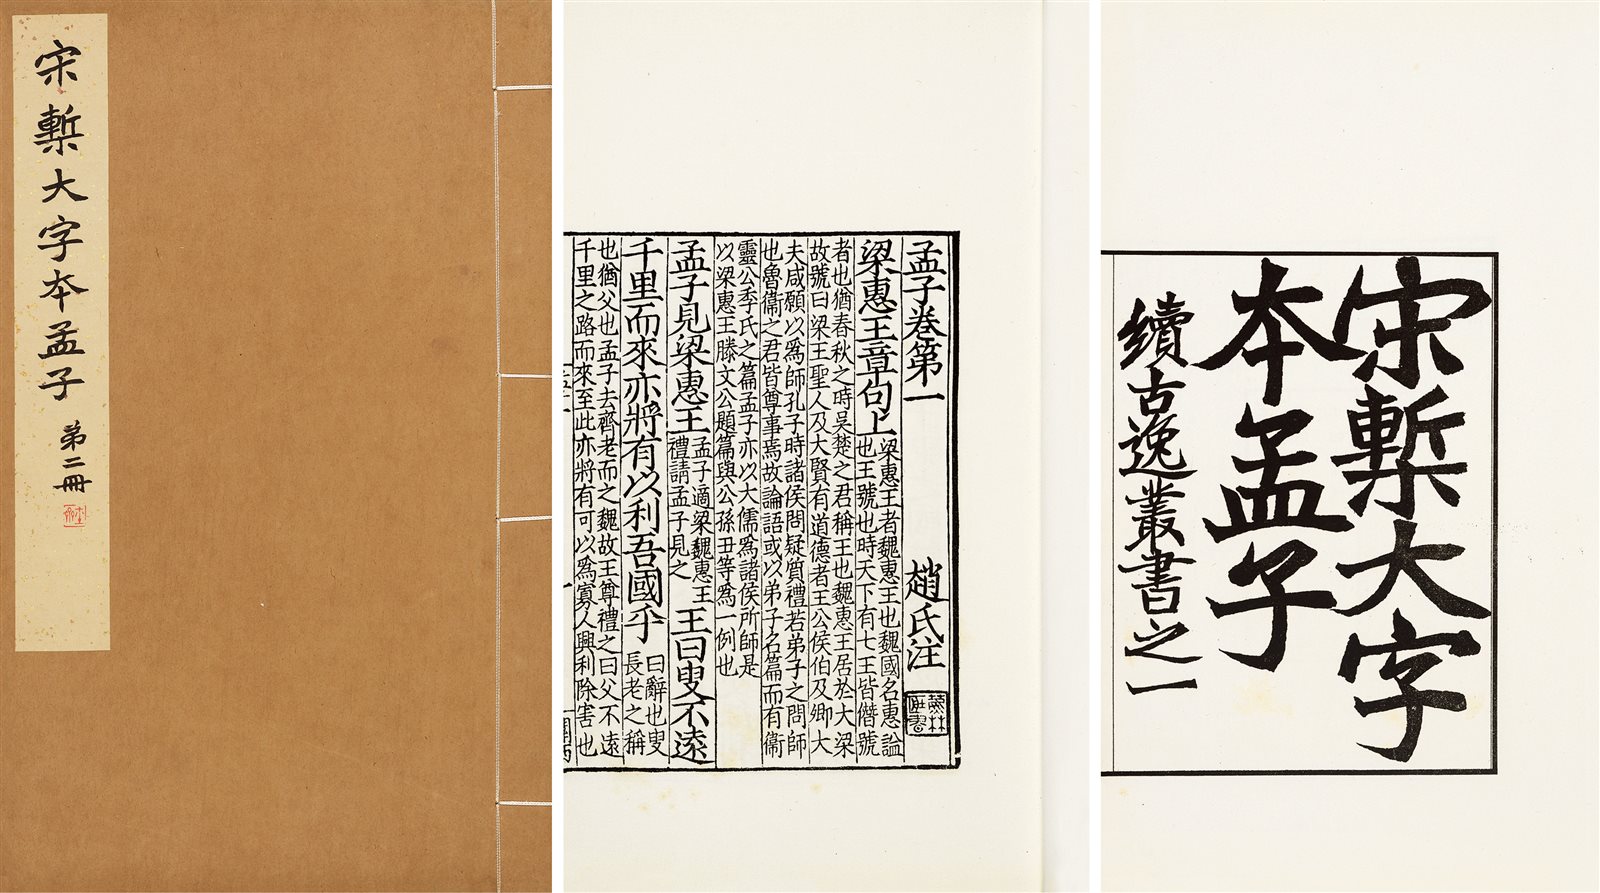 宋槧大字本孟子 第二冊
孟子卷第一 趙氏注
梁惠王章句上 梁惠王者魏惠王也魏國名惠謚
也王號也時天下有七王皆僭號
者也猶春秋之時吳楚之君稱王也魏惠王居於大梁
故號曰梁王聖人及大賢有道德者王公侯伯及卿大
夫咸願以為師孔子時諸侯問疑質禮若弟子之問師
也魯衞之君皆尊事焉故論語或以弟子名篇而有衞
靈公季氏之篇孟子亦以大儒為諸侯所師是
以梁惠王滕文公題篇與公孫丑等為一例也
孟子見梁惠王 孟子適梁魏惠王
禮請孟子見之 王曰叟不遠
千里而來亦將有以利吾國乎 曰辭也叟
長老之稱
也猶父也孟子去齊老而之魏故王尊禮之曰父不遠
千里之路而來至此亦將有可以為寡人興利除害也
宋槧大字
本孟子
續古逸叢書之一